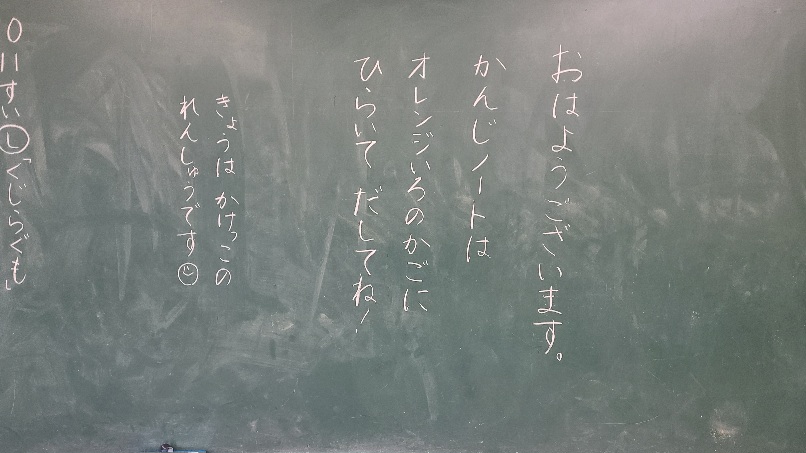 おはようございます。
かんじノートは
オレンジいろのかごに
ひらいてだしてね!
きょうは かけっこの
れんしゅうです☺
0 = すい Ⓛ「くじらぐも」